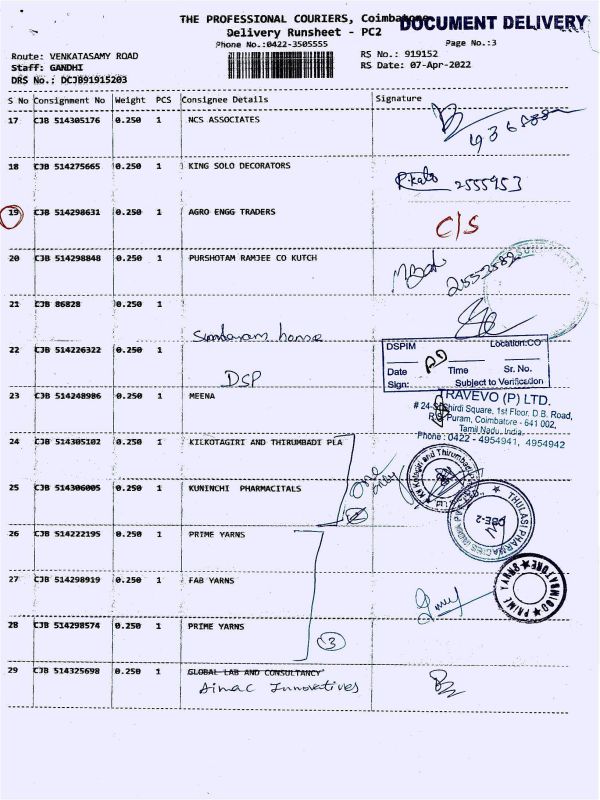 THE PROFESSIONAL COURIERS, Coimbatore
DOCUMENT DELIVERY
Delivery Runsheet - PC2
Phone No.:0422-3505555
Page No.:3
Route: VENKATASAMY ROAD
RS No.: 919152
Staff: GANDHI
RS Date: 07-Apr-2022
DRS No.: DCJB91915203
S No Consignment No Weight PCS Consignee Details Signature
17 CJB 514305176 0.250 1 NCS ASSOCIATES
18 CJB 514275665 0.250 1 KING SOLO DECORATORS
2555953
19 CJB 514298631 0.250 1 AGRO ENGG TRADERS
C/S
20 CJB 514298848 0.250 1 PURSHOTAM RAMJEE CO KUTCH
21 CJB 86828 0.250 1
Sundaram home
DSPIM Location:CO
22 CJB 514226322 0.250 1
Date Time Sr. No.
DSP
Sign: Subject to Verification
23 CJB 514248986 0.250 1 MEENA
TRAVEVO (P) LTD.
Shirdi Square, 1st Floor, D.B. Road,
R.S. Puram, Coimbatore - 641 002,
Tamil Nadu, India.
Phone : 0422 - 4954941, 4954942
24 CJB 514305102 0.250 1 KILKOTAGIRI AND THIRUMBADI PLA
one only
25 CJB 514306005 0.250 1 KUNINCHI PHARMACITALS
THULASI PHARMACIES INDIA PVT. LTD.
CBE-2
26 CJB 514222195 0.250 1 PRIME YARNS
27 CJB 514298919 0.250 1 FAB YARNS
PRIME YARNS COIMBATORE
28 CJB 514298574 0.250 1 PRIME YARNS
3
29 CJB 514325698 0.250 1 GLOBAL LAB AND CONSULTANCY
Aimac Innovatives